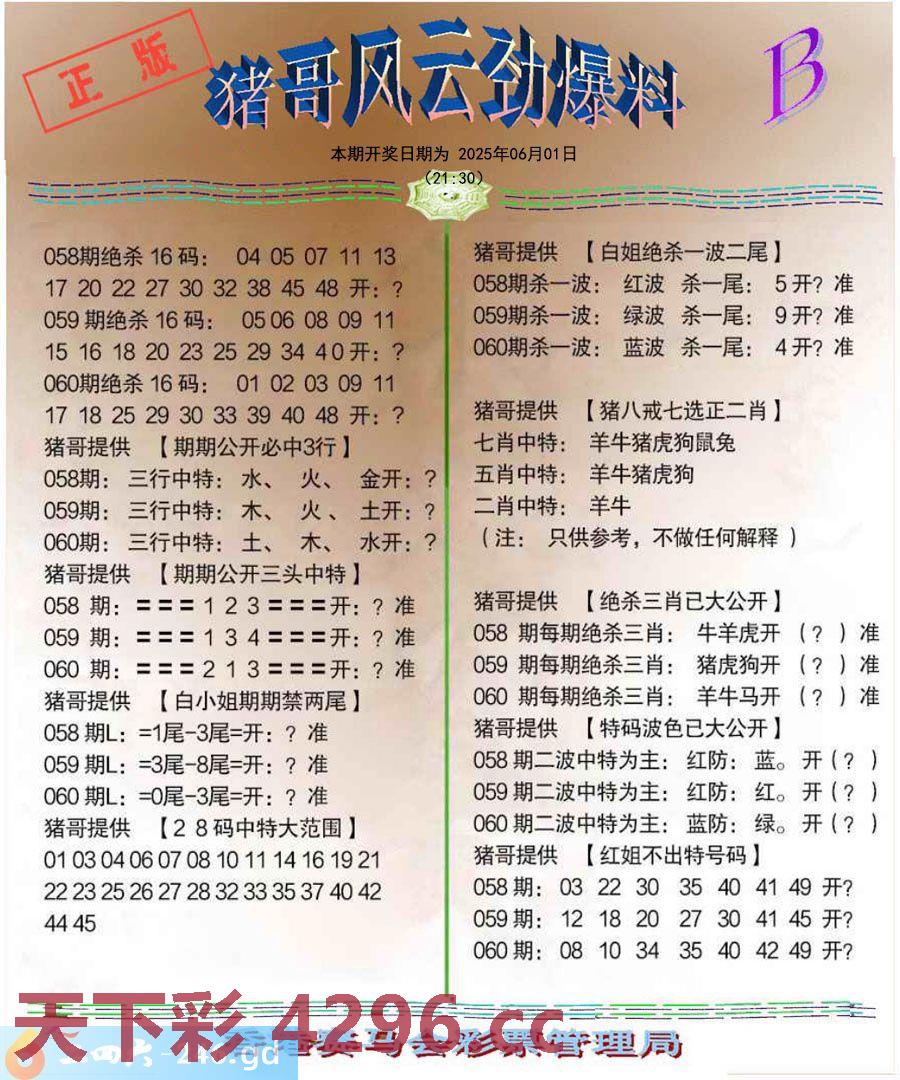 正版
猪哥风云劲爆料
B
本期开奖日期为 2025年06月01日
(21:30)
058期绝杀16码: 04 05 07 11 13
17 20 22 27 30 32 38 45 48 开:?
059期绝杀16码: 05 06 08 09 11
15 16 18 20 23 25 29 34 40开:?
060期绝杀16码: 01 02 03 09 11
17 18 25 29 30 33 39 40 48 开:?
猪哥提供 【期期公开必中3行】
058期: 三行中特: 水、 火、 金开:?
059期: 三行中特: 木、 火、 土开:?
060期: 三行中特: 土、 木、 水开:?
猪哥提供 【期期公开三头中特】
058 期: === 1 2 3 ===开:? 准
059 期: === 1 3 4 ===开:? 准
060 期: === 2 1 3 ===开:? 准
猪哥提供 【白小姐期期禁两尾】
058 期L: =1尾-3尾=开:? 准
059 期L: =3尾-8尾=开:? 准
060 期L: =0尾-3尾=开:? 准
猪哥提供 【28码中特大范围】
01 03 04 06 07 08 10 11 14 16 19 21
22 23 25 26 27 28 32 33 35 37 40 42
44 45
猪哥提供 【白姐绝杀一波二尾】
058期杀一波: 红波 杀一尾: 5开? 准
059期杀一波: 绿波 杀一尾: 9开? 准
060期杀一波: 蓝波 杀一尾: 4开? 准
猪哥提供 【猪八戒七选正二肖】
七肖中特: 羊牛猪虎狗鼠兔
五肖中特: 羊牛猪虎狗
二肖中特: 羊牛
(注: 只供参考,不做任何解释 )
猪哥提供 【绝杀三肖已大公开】
058 期每期绝杀三肖: 牛羊虎开 (?)准
059 期每期绝杀三肖: 猪虎狗开 (?)准
060 期每期绝杀三肖: 羊牛马开 (?)准
猪哥提供 【特码波色已大公开】
058期二波中特为主: 红防: 蓝。开(?)
059期二波中特为主: 红防: 红。开(?)
060期二波中特为主: 蓝防: 绿。开(?)
猪哥提供 【红姐不出特号码】
058 期: 03 22 30 35 40 41 49 开?
059 期: 12 18 20 27 30 41 45 开?
060 期: 08 10 34 35 40 42 49 开?
天下彩 4296.cc
马会彩票管理局